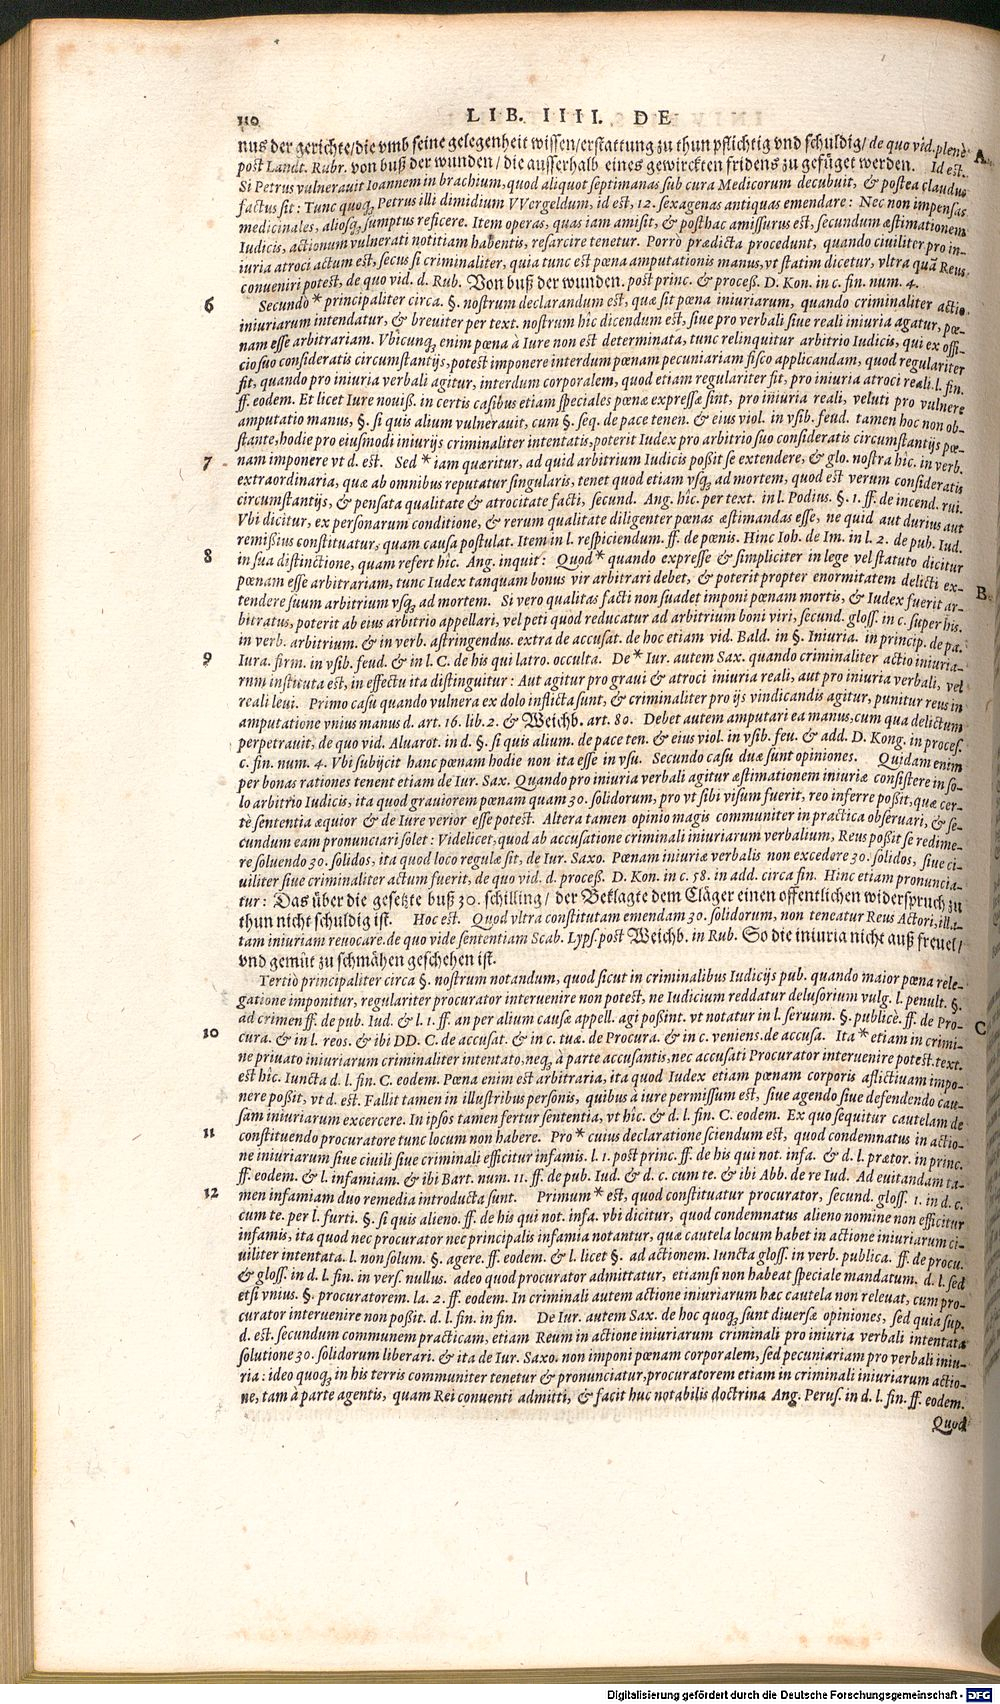 110 LIB. IIII. DE
nus der gerichte/die vmb seine gelegenheit wissen/erstattung zu thun pflichtig vnd schuldig/ de quo vid. plenè A
post Landt. Rubr. von buß der wunden/ die ausserhalb eines gewirckten fridens zu gefüget werden. Id est.
Si Petrus vulnerauit Ioannem in brachium, quod aliquot septimanas sub cura Medicorum decubuit, & postea claudus
factus sit: Tunc quoq; Petrus illi dimidium VVergeldum, id est, 12. sexagenas antiquas emendare: Nec non impensas
medicinales, aliosq; sumptus reficere. Item operas, quas iam amisit, & posthac amissurus est, secundum æstimationem
Iudicis, actionum vulnerati notitiam habentis, resarcire tenetur. Porrò prædicta procedunt, quando ciuiliter pro in-
iuria atroci actum est, secus si criminaliter, quia tunc est pœna amputationis manus, vt statim dicetur, vltra quã Reus
conueniri potest, de quo vid. d. Rub. Von buß der wunden. post princ. & proceß. D. Kon. in c. fin. num. 4.
6 Secundò * principaliter circa. §. nostrum declarandum est, quæ sit pœna iniuriarum, quando criminaliter actio
iniuriarum intendatur, & breuiter per text. nostrum hîc dicendum est, siue pro verbali siue reali iniuria agatur, pœ-
nam esse arbitrariam. Vbicunq; enim pœna à Iure non est determinata, tunc relinquitur arbitrio Iudicis, qui ex offi-
cio suo consideratis circumstantijs, potest imponere interdum pœnam pecuniariam fisco applicandam, quod regulariter
fit, quando pro iniuria verbali agitur, interdum corporalem, quod etiam regulariter fit, pro iniuria atroci reali. l. fin.
ff. eodem. Et licet Iure nouiß. in certis casibus etiam speciales pœnæ expressæ sint, pro iniuria reali, veluti pro vulnere
amputatio manus, §. si quis alium vulnerauit, cum §. seq. de pace tenen. & eius viol. in vsib. feud. tamen hoc non ob-
stante, hodie pro eiusmodi iniurijs criminaliter intentatis, poterit Iudex pro arbitrio suo consideratis circumstantijs pœ-
7 nam imponere vt d. est. Sed * iam quæritur, ad quid arbitrium Iudicis poßit se extendere, & glo. nostra hîc. in verb.
extraordinaria, quæ ab omnibus reputatur singularis, tenet quod etiam vsq; ad mortem, quod est verum consideratis
circumstantijs, & pensata qualitate & atrocitate facti, secund. Ang. hîc. per text. in l. Podius. §. 1. ff. de incend. rui.
Vbi dicitur, ex personarum conditione, & rerum qualitate diligenter pœnas æstimandas esse, ne quid aut durius aut
remißius constituatur, quam causa postulat. Item in l. respiciendum. ff. de pœnis. Hinc Ioh. de Im. in l. 2. de pub. Iud.
8 in sua distinctione, quam refert hic. Ang. inquit: Quod * quando expresse & simpliciter in lege vel statuto dicitur
pœnam esse arbitrariam, tunc Iudex tanquam bonus vir arbitrari debet, & poterit propter enormitatem delicti ex- B
tendere suum arbitrium vsq; ad mortem. Si vero qualitas facti non suadet imponi pœnam mortis, & Iudex fuerit ar-
bitratus, poterit ab eius arbitrio appellari, vel peti quod reducatur ad arbitrium boni viri, secund. gloss. in c. super his.
in verb. arbitrium. & in verb. astringendus. extra de accusat. de hoc etiam vid. Bald. in §. Iniuria. in princip. de pa.
9 Iura. firm. in vsib. feud. & in l. C. de his qui latro. occulta. De * Iur. autem Sax. quando criminaliter actio iniuria-
rum instituta est, in effectu ita distinguitur: Aut agitur pro graui & atroci iniuria reali, aut pro iniuria verbali, vel
reali leui. Primo casu quando vulnera ex dolo inflicta sunt, & criminaliter pro ijs vindicandis agitur, punitur reus in
amputatione vnius manus d. art. 16. lib. 2. & Weichb. art. 80. Debet autem amputari ea manus, cum qua delictum
perpetrauit, de quo vid. Aluarot. in d. §. si quis alium. de pace ten. & eius viol. in vsib. feu. & add. D. Kong. in proces.
c. fin. num. 4. Vbi subijcit hanc pœnam hodie non ita esse in vsu. Secundo casu duæ sunt opiniones. Quidam enim
per bonas rationes tenent etiam de Iur. Sax. Quando pro iniuria verbali agitur æstimationem iniuriæ consistere in so-
lo arbitrio Iudicis, ita quod grauiorem pœnam quam 30. solidorum, pro vt sibi visum fuerit, reo inferre poßit, quæ cer-
tè sententia æquior & de Iure verior esse potest. Altera tamen opinio magis communiter in practica obseruari, & se-
cundum eam pronunciari solet: Videlicet, quod ab accusatione criminali iniuriarum verbalium, Reus poßit se redime-
re soluendo 30. solidos, ita quod loco regulæ sit, de Iur. Saxo. Pœnam iniuriæ verbalis non excedere 30. solidos, siue ci-
uiliter siue criminaliter actum fuerit, de quo vid. d. proceß. D. Kon. in c. 58. in add. circa fin. Hinc etiam pronuncia-
tur: Das über die gesetzte buß 30. schilling/ der Beklagte dem Cläger einen offentlichen widerspruch zu
thun nicht schuldig ist. Hoc est. Quod vltra constitutam emendam 30. solidorum, non teneatur Reus Actori, illa-
tam iniuriam reuocare. de quo vide sententiam Scab. Lyps. post Weichb. in Rub. So die iniuria nicht auß freuel/
vnd gemüt zu schmähen geschehen ist.
Tertiò principaliter circa §. nostrum notandum, quod sicut in criminalibus Iudicijs pub. quando maior pœna rele-
gatione imponitur, regulariter procurator interuenire non potest, ne Iudicium reddatur delusorium vulg. l. penult. §.
ad crimen ff. de pub. Iud. & l. 1. ff. an per alium causæ appell. agi poßint. vt notatur in l. seruum. §. publicè. ff. de Pro- C
10 cura. & in l. reos. & ibi DD. C. de accusat. & in c. tuæ. de Procura. & in c. veniens. de accusa. Ita * etiam in crimi-
ne priuato iniuriarum criminaliter intentato, neq; à parte accusantis, nec accusati Procurator interuenire potest. text.
est hîc. Iuncta d. l. fin. C. eodem. Pœna enim est arbitraria, ita quod Iudex etiam pœnam corporis aflictiuam impo-
nere poßit, vt d. est. Fallit tamen in illustribus personis, quibus à iure permissum est, siue agendo siue defendendo cau-
sam iniuriarum excercere. In ipsos tamen fertur sententia, vt hîc. & d. l. fin. C. eodem. Ex quo sequitur cautelam de
11 constituendo procuratore tunc locum non habere. Pro * cuius declaratione sciendum est, quod condemnatus in actio-
ne iniuriarum siue ciuili siue criminali efficitur infamis. l. 1. post princ. ff. de his qui not. infa. & d. l. prætor. in princ.
ff. eodem. & l. infamiam. & ibi Bart. num. 11. ff. de pub. Iud. & d. c. cum te. & ibi Abb. de re Iud. Ad euitandam ta-
12 men infamiam duo remedia introducta sunt. Primum * est, quod constituatur procurator, secund. gloss. 1. in d. c.
cum te. per l. furti. §. si quis alieno. ff. de his qui not. infa. vbi dicitur, quod condemnatus alieno nomine non efficitur
infamis, ita quod nec procurator nec principalis infamia notantur, quæ cautela locum habet in actione iniuriarum ci-
uiliter intentata. l. non solum. §. agere. ff. eodem. & l. licet §. ad actionem. Iuncta gloss. in verb. publica. ff. de procu.
& gloss. in d. l. fin. in vers. nullus. adeo quod procurator admittatur, etiamsi non habeat speciale mandatum. d. l. sed
etsi vnius. §. procuratorem. la. 2. ff. eodem. In criminali autem actione iniuriarum hæc cautela non releuat, cum pro-
curator interuenire non poßit. d. l. fin. in fin. De Iur. autem Sax. de hoc quoq; sunt diuersæ opiniones, sed quia sup.
d. est. secundum communem practicam, etiam Reum in actione iniuriarum criminali pro iniuria verbali intentata
solutione 30. solidorum liberari. & ita de Iur. Saxo. non imponi pœnam corporalem, sed pecuniariam pro verbali iniu-
ria: ideo quoq; in his terris communiter tenetur & pronunciatur, procuratorem etiam in criminali iniuriarum actio-
ne, tam à parte agentis, quam Rei conuenti admitti, & facit huc notabilis doctrina Ang. Perus. in d. l. fin. ff. eodem.
Quod
Digitalisierung gefördert durch die Deutsche Forschungsgemeinschaft - DFG